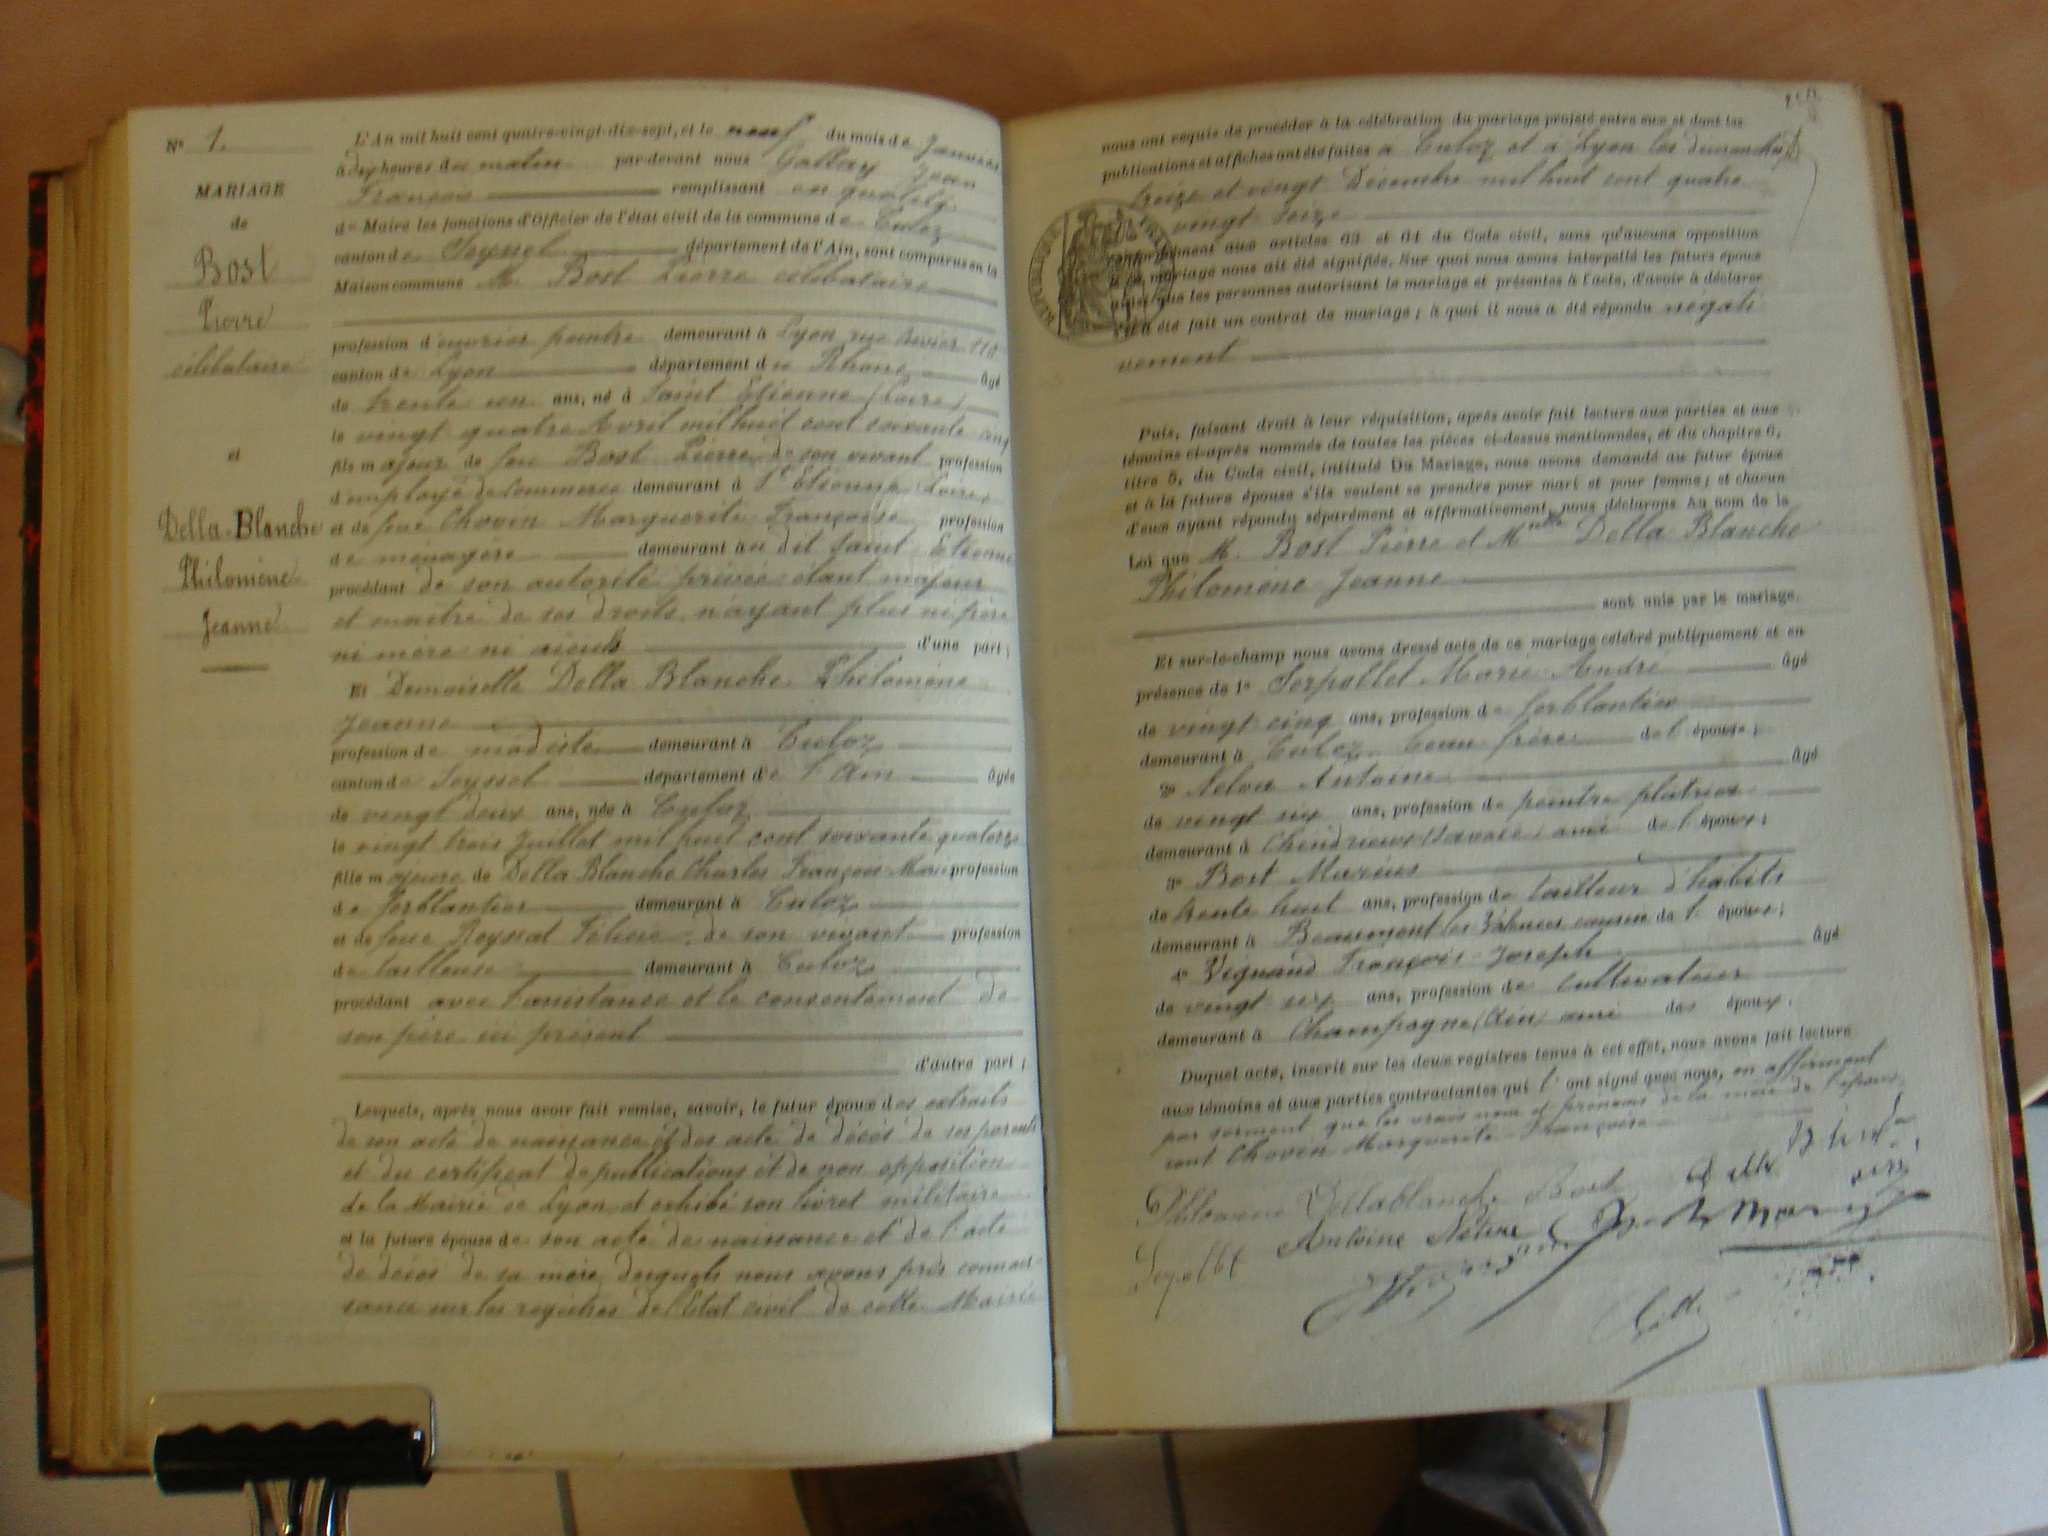 N° 1.
MARIAGE
de
Bost
Pierre
célibataire
et
Della-Blanche
Philomène
Jeanne
L'An mil huit cent quatre-vingt-dix-sept, et le neuf du mois de Janvier
à dix heures du matin par-devant nous Gallay Jean
François remplissant en qualité
de Maire les fonctions d'Officier de l'état civil de la commune de Culoz
canton de Seyssel département de l'Ain, sont comparus en la
Maison commune M. Bost Pierre célibataire
profession d'ouvrier peintre demeurant à Lyon rue 118
canton de Lyon département du Rhône âgé
de trente un ans, né à Saint Etienne (Loire)
le vingt quatre Avril mil huit cent soixante cinq
fils majeur de feu Bost Pierre, de son vivant profession
d'employé de Commerce demeurant à St Etienne (Loire)
et de feue Chovin Marguerite Françoise profession
de ménagère demeurant au dit Saint Etienne
procédant de son autorité privée étant majeur
et maître de ses droits n'ayant plus ni père
ni mère ni aieuls d'une part;
Et Demoiselle Della Blanche Philomène
Jeanne
profession de modiste demeurant à Culoz
canton de Seyssel département de l'Ain âgée
de vingt deux ans, née à Culoz
le vingt trois Juillet mil huit cent soixante quatorze
fille majeure de Della Blanche Charles François Marie profession
de ferblantier demeurant à Culoz
et de feue Reyssat Félicie de son vivant profession
de tailleuse demeurant à Culoz
procédant avec l'assistance et le consentement de
son père ici présent
d'autre part;
Lesquels, après nous avoir fait remise, savoir, le futur époux des extraits
de son acte de naissance et des acte de décès de ses parents
et du certificat de publications et de non opposition
de la Mairie de Lyon et exhibé son livret militaire
et la future épouse de son acte de naissance et de l'acte
de décès de sa mère desquels nous avons pris connais-
sance sur les registres de l'Etat civil de cette Mairie
nous ont requis de procéder à la célébration du mariage projeté entre eux et dont les
publications et affiches ont été faites à Culoz et à Lyon les dimanches
treize et vingt Décembre mil huit cent quatre
vingt seize
conformément aux articles 63 et 64 du Code civil, sans qu'aucune opposition
à ce mariage nous ait été signifiée. Sur quoi nous avons interpellé les futurs époux
ainsi que les personnes autorisant le mariage et présentes à l'acte, d'avoir à déclarer
s'il a été fait un contrat de mariage; à quoi il nous a été répondu négati
vement
Puis, faisant droit à leur réquisition, après avoir fait lecture aux parties et aux
témoins ci-après nommés de toutes les pièces ci-dessus mentionnées, et du chapitre 6,
titre 5, du Code civil, intitulé Du Mariage, nous avons demandé au futur époux
et à la future épouse s'ils veulent se prendre pour mari et pour femme; et chacun
d'eux ayant répondu séparément et affirmativement, nous déclarons Au nom de la
Loi que M. Bost Pierre et Melle Della Blanche
Philomène Jeanne
sont unis par le mariage.
Et sur-le-champ nous avons dressé acte de ce mariage célébré publiquement et en
présence de 1° Serpollet Marie André âgé
de vingt cinq ans, profession de ferblantier
demeurant à Culoz beau frère de l'épouse;
2° Antoine âgé
de vingt six ans, profession de peintre plâtrier
demeurant à Chindrieux (Savoie) ami de l'époux;
3° Bost Marius
de trente huit ans, profession de tailleur d'habits
demeurant à Beaumont les Valences cousin de l'époux;
4° Vignand François Joseph âgé
de vingt six ans, profession de cultivateur
demeurant à Champagne (Ain) ami des époux.
Duquel acte, inscrit sur les deux registres tenus à cet effet, nous avons fait lecture
aux témoins et aux parties contractantes qui l'ont signé avec nous, en affirmant
par serment que les vrais nom et prénoms de la mère de l'époux
sont Chovin Marguerite Françoise
Philomène Dellablanche Bost
Antoine